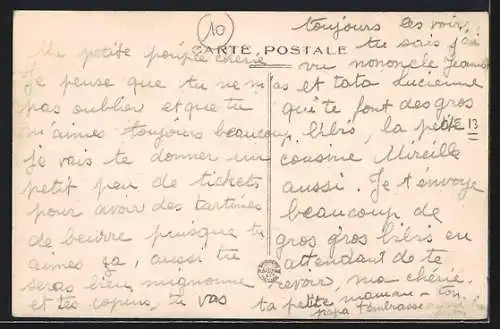 10
CARTE POSTALE
Ma petite poupée chérie
Je pense que tu ne m'as
pas oublier et que tu
m'aimes toujours beaucoup
je vais te donner un
petit peu de tickets
pour avoir des tartines
de beurre puisque tu
aimes ça, aussi tu
seras bien mignonne
et tes copins, tu vas
toujours les voir.
tu sais j'ai
vu nononcle Jeannot
et tata Lucienne
qui te font des gros
bibis, la petite
13
cousine Mireille
aussi. Je t'envoye
beaucoup de
gros gros bibis en
attendant de te
revoir, ma chérie.
ta petite maman - ton
papa t'embrasse aussi